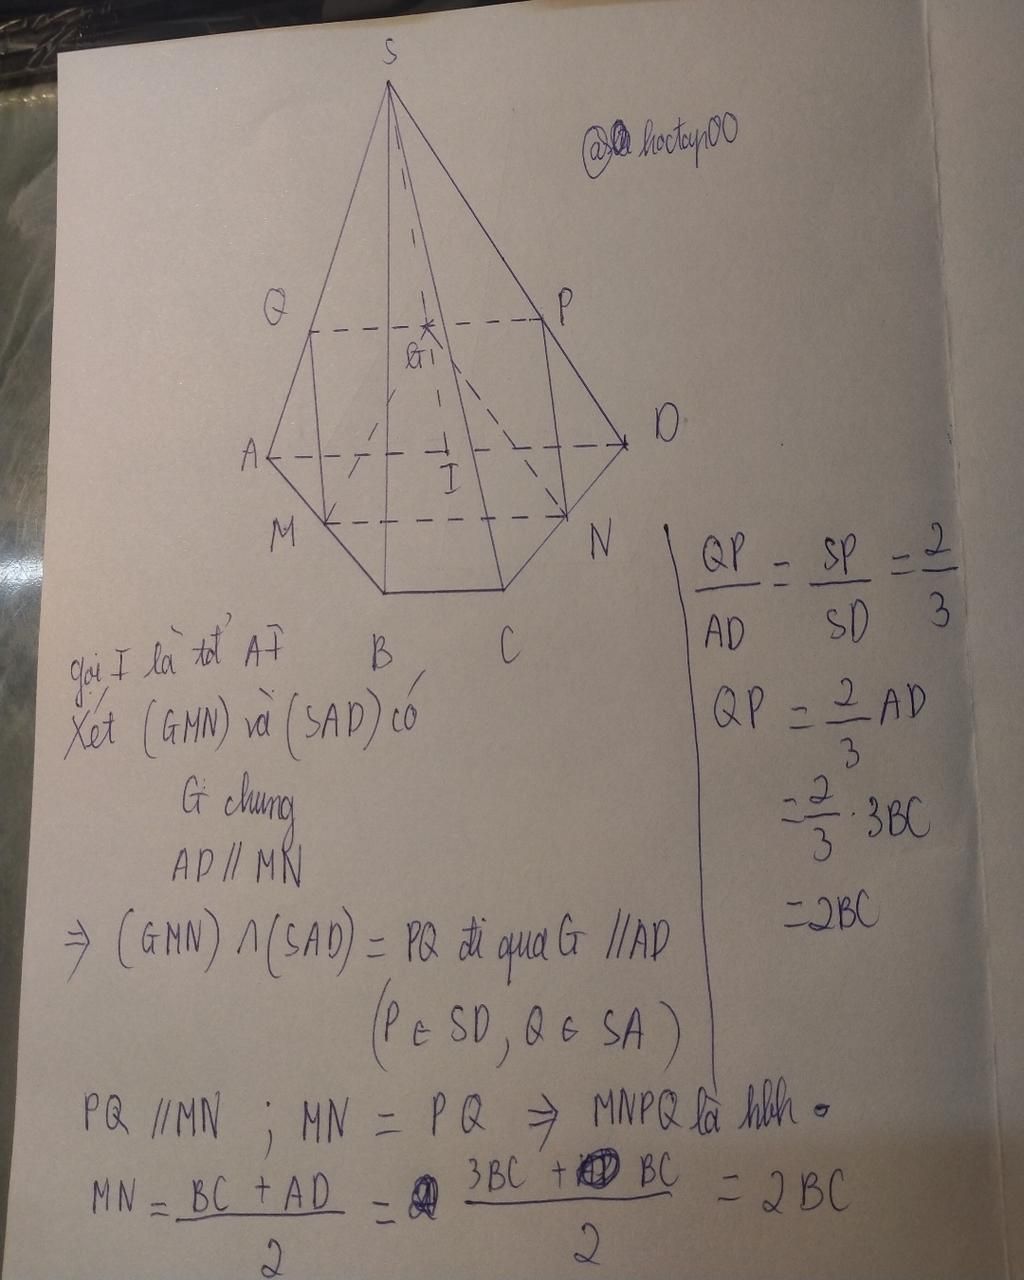 S
@ hoctap00
Q
P
G
A
D
I
M
N
B
C
gọi I là tđ AI
Xét (GMN) và (SAD) có
G chung
AD // MN
⇒ (GMN) ∩ (SAD) = PQ đi qua G // AD
(P ∈ SD, Q ∈ SA)
QP/AD = SP/SD = 2/3
QP = 2/3 AD
= 2/3 · 3BC
= 2BC
PQ // MN ; MN = PQ ⇒ MNPQ là hbh.
MN = (BC + AD)/2 = (3BC + BC)/2 = 2BC